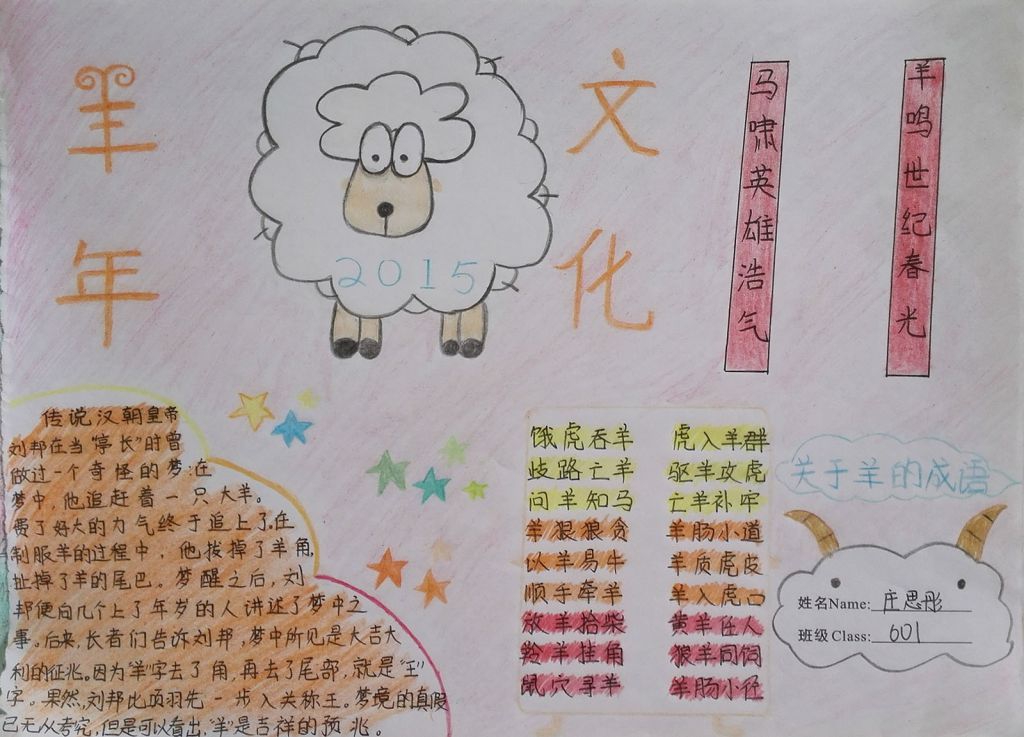 羊年
文化
2015
马啸英雄浩气
羊鸣世纪春光
传说汉朝皇帝
刘邦在当"亭长"时曾
做过一个奇怪的梦:在
梦中,他追赶着一只大羊。
费了好大的力气终于追上了,在
制服羊的过程中,他拔掉了羊角,
扯掉了羊的尾巴。梦醒之后,刘
邦便向几个上了年岁的人讲述了梦中之
事。后来,长者们告诉刘邦,梦中所见是大吉大
利的征兆。因为"羊"字去了角,再去了尾部,就是"王"
字。果然,刘邦比项羽先一步入关称王。梦境的真假
已无从考究,但是可以看出,"羊"是吉祥的预兆。
饿虎吞羊 虎入羊群
歧路亡羊 驱羊攻虎
问羊知马 亡羊补牢
羊狠狼贪 羊肠小道
以羊易牛 羊质虎皮
顺手牵羊 羊入虎口
放羊拾柴 黄羊任人
羚羊挂角 狼羊同饲
鼠穴寻羊 羊肠小径
关于羊的成语
姓名Name: 庄思彤
班级Class: 601